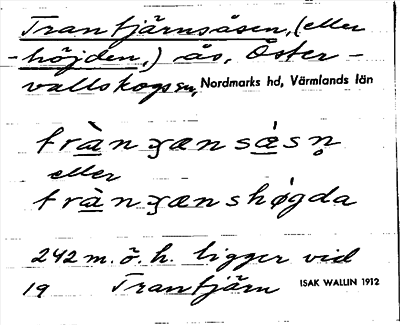 Trantjärnsåsen, (eller
-höjden,) ås, Öster-
vallskogsn, Nordmarks hd, Värmlands län
eller
242 m. ö. h. ligger vid
19 Trantjärn ISAK WALLIN 1912